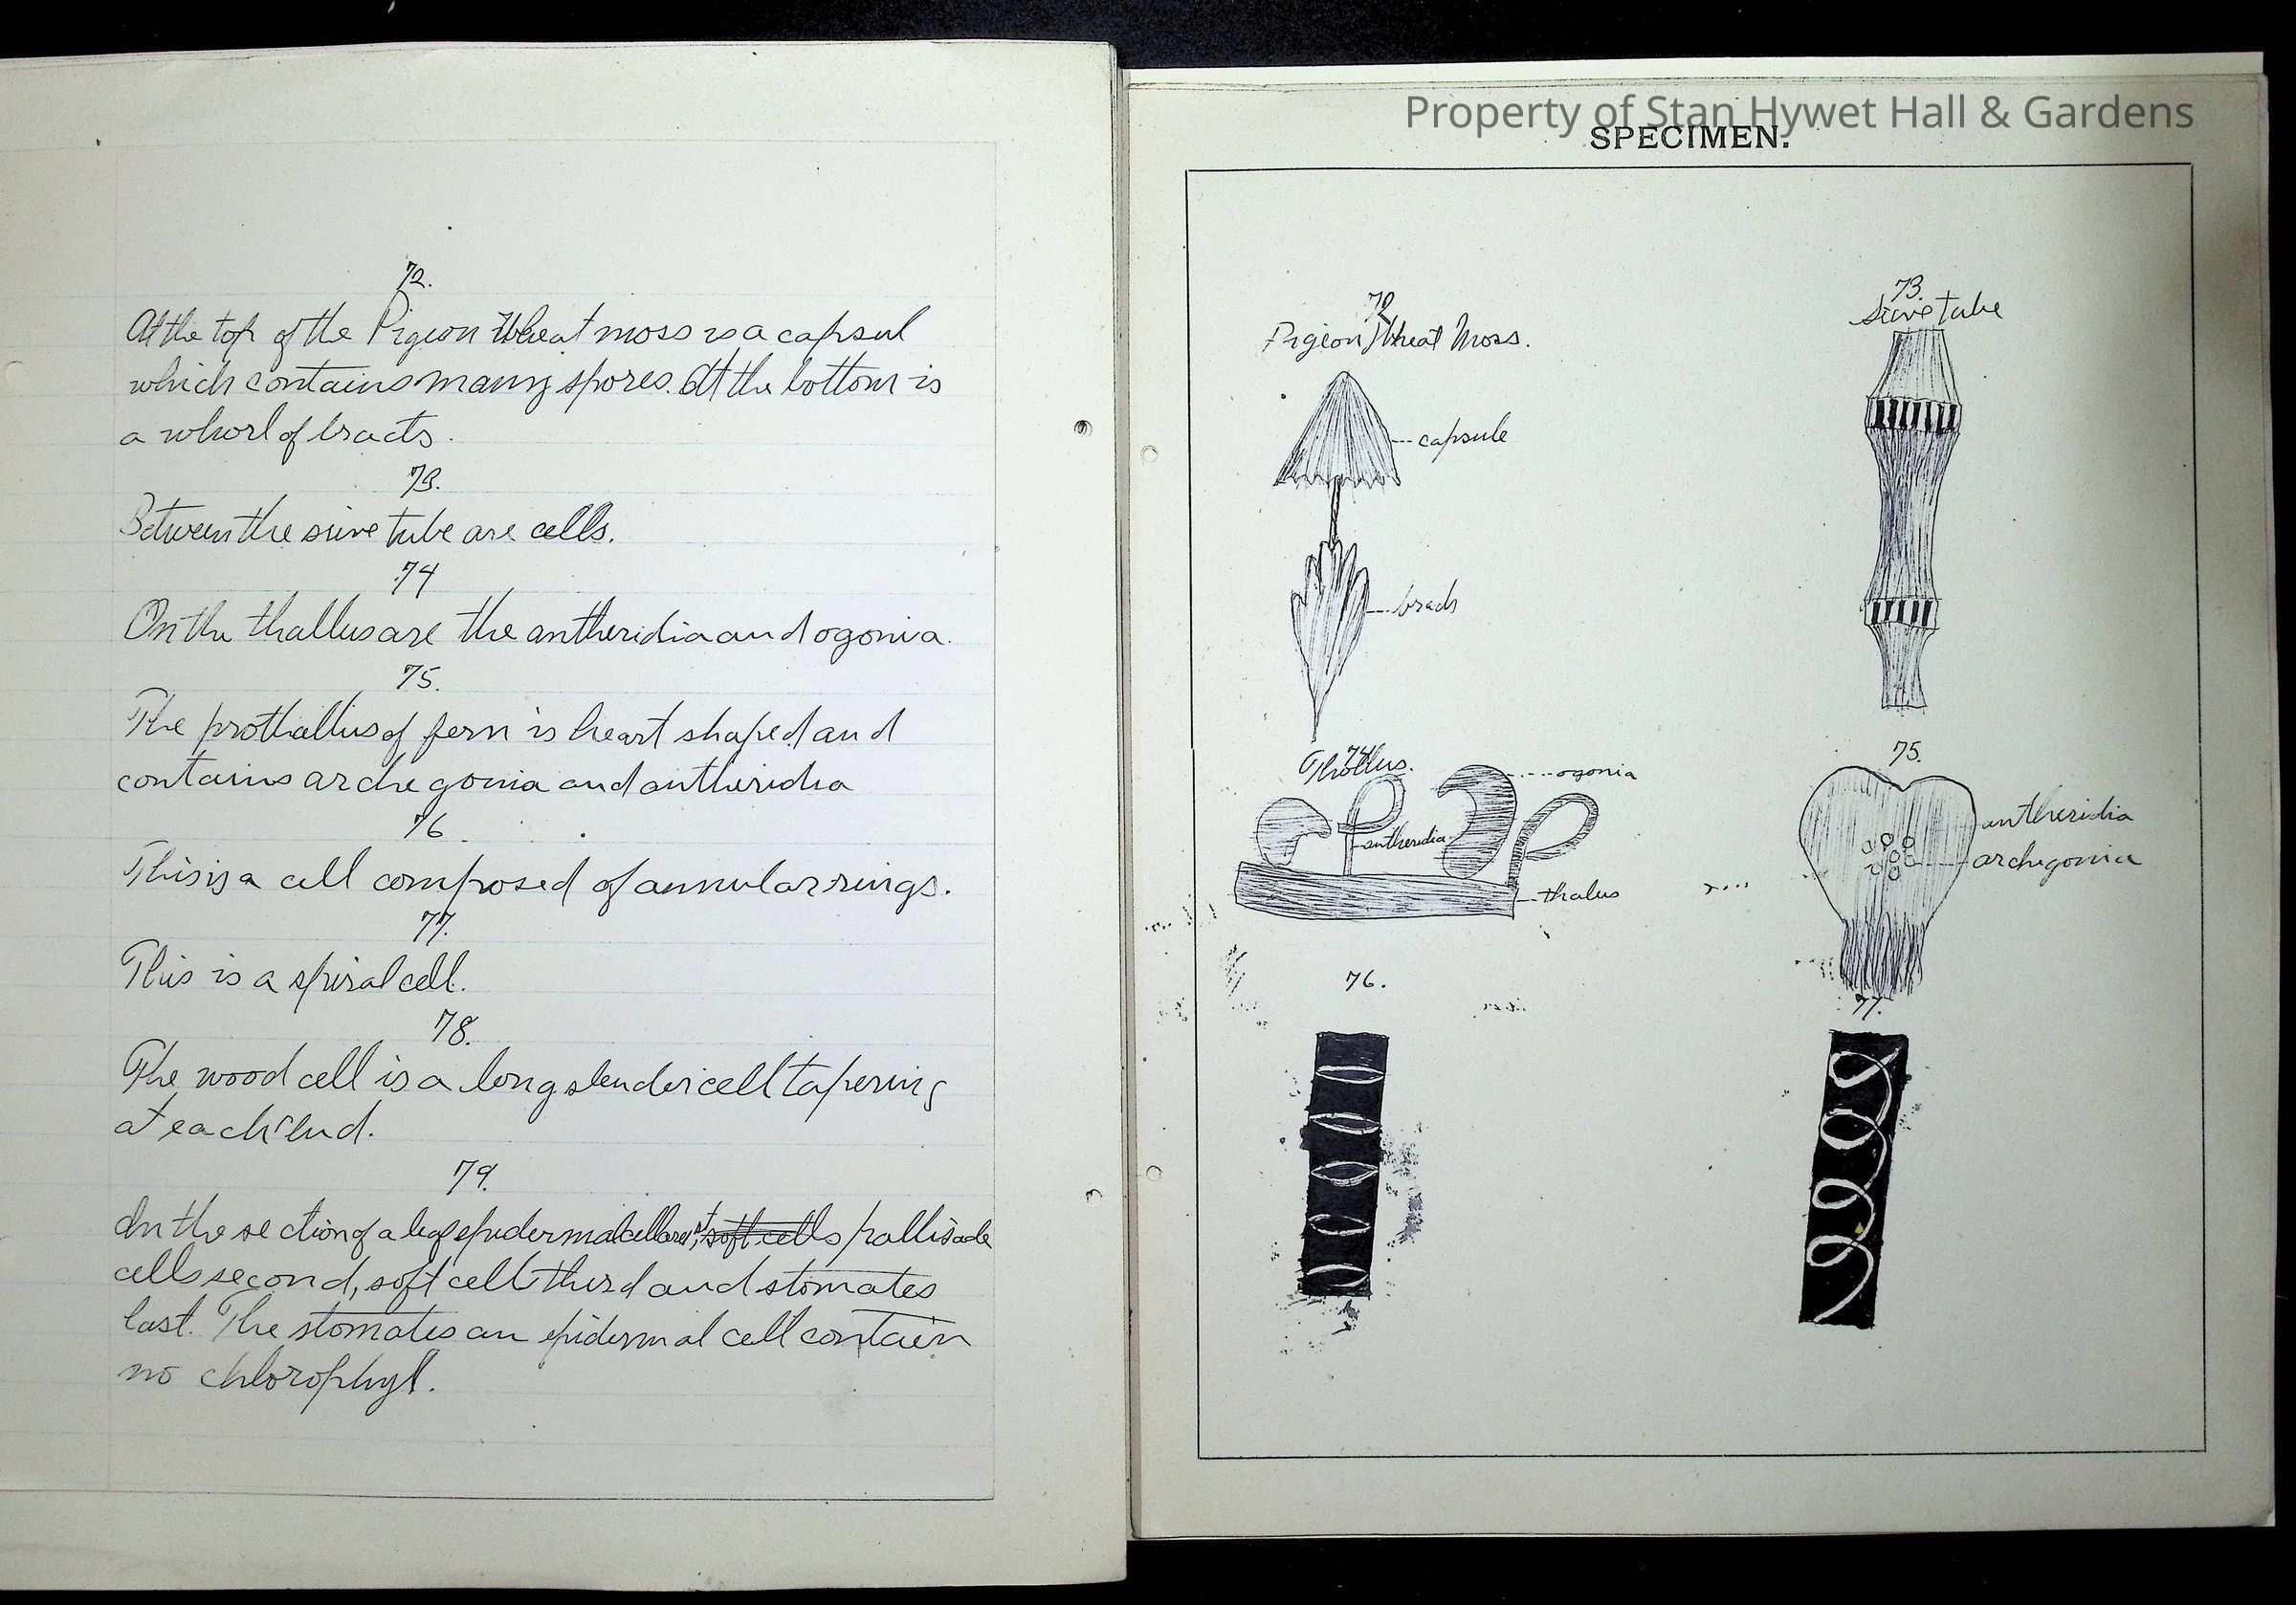 72.
At the top of the Pigeon Wheat moss is a capsul
which contains many spores. At the bottom is
a whorl of bracts.
73.
Between the sieve tube are cells.
74
On the thallus are the antheridia and ogonia.
75.
The prothallus of fern is heart shaped and
contains archegonia and antheridia
76.
This is a cell composed of annular rings.
77.
This is a spiral cell.
78.
The wood cell is a long slender cell tapering
at each end.
79.
In the section of a leaf epidermal cell are 1st, soft cells pallisade
cells second, soft cell third and stomates
last. The stomates an epidermal cell contain
no chlorophyl.
Property of Stan Hywet Hall & Gardens
SPECIMEN.
72
Pigeon Wheat Moss.
capsule
bracts
73.
Sieve tube
74
Thallus.
ogonia
antheridia
thalus
75.
antheridia
archegonia
76.
77.